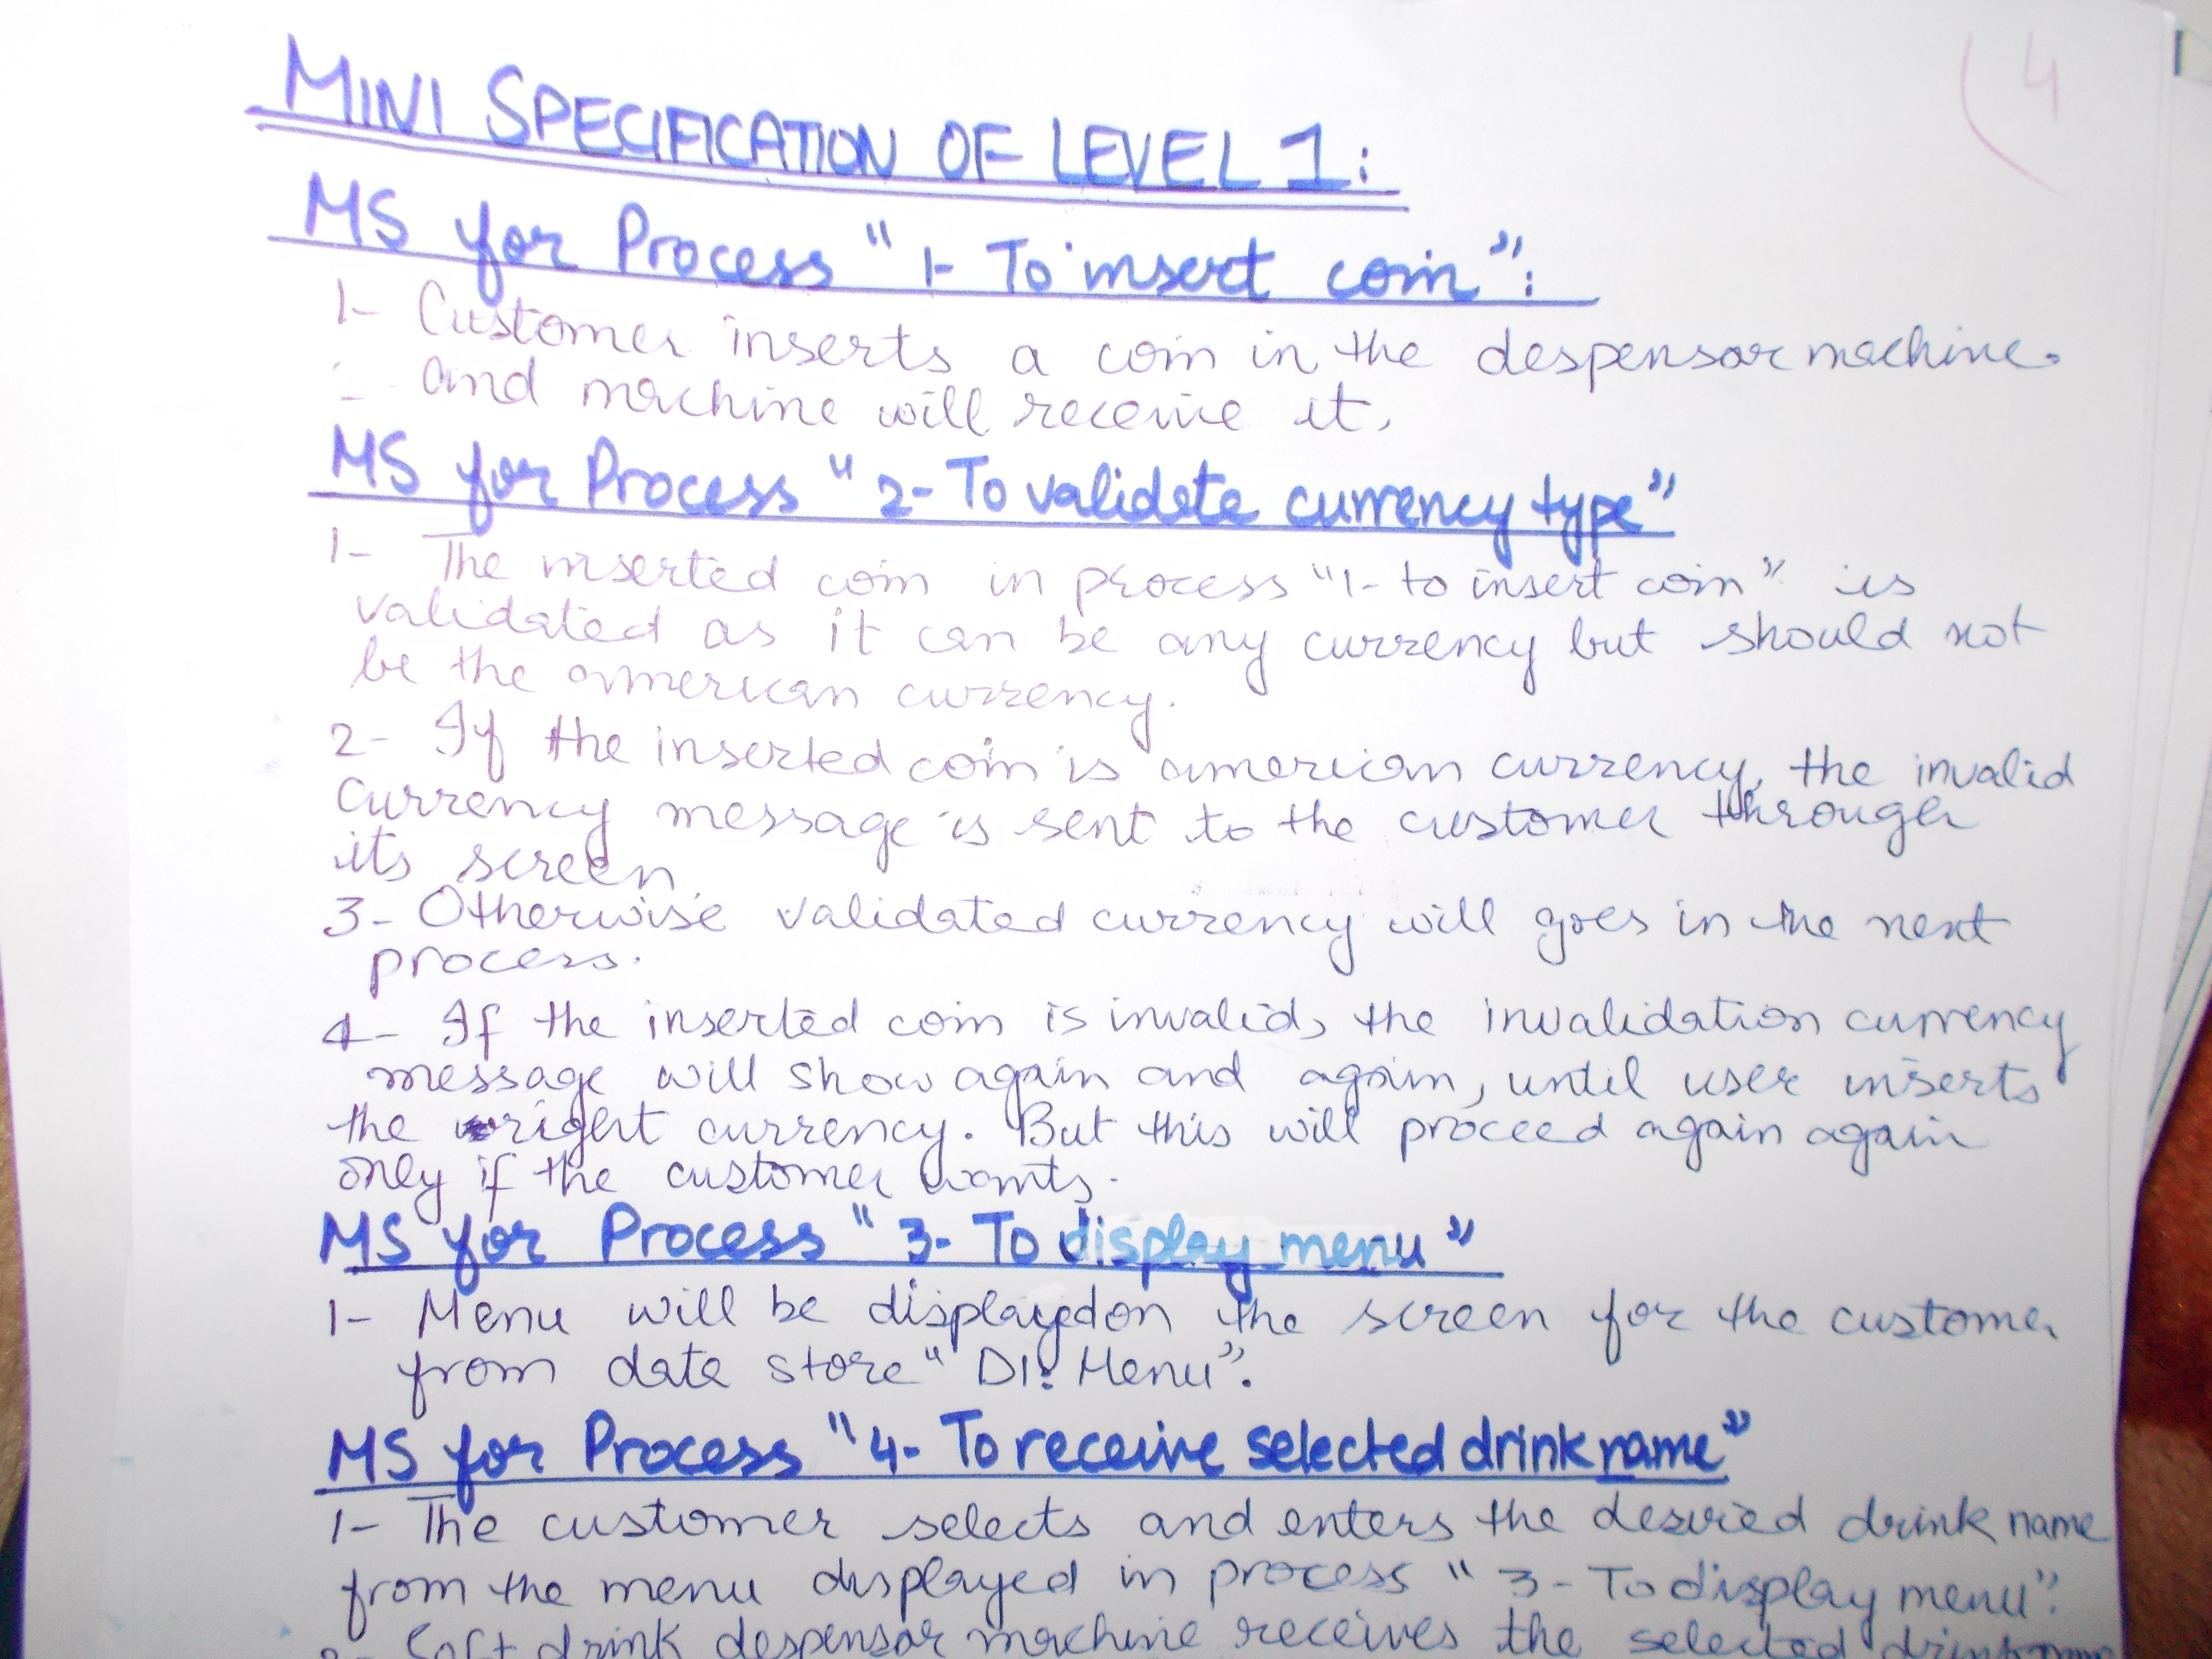 4
MINI SPECIFICATION OF LEVEL 1:
MS for Process "1- To insert coin":
1- Customer inserts a coin in the despensar machine.
and machine will receive it.
MS for Process "2- To validate currency type"
1- The inserted coin in process "1- to insert coin" is
validated as it can be any currency but should not
be the american currency.
2- If the inserted coin is american currency, the invalid
currency message is sent to the customer through
its screen.
3- Otherwise validated currency will goes in the next
process.
4- If the inserted coin is invalid, the invalidation currency
message will show again and again, until user inserts
the right currency. But this will proceed again again
only if the customer wants.
MS for Process "3- To display menu"
1- Menu will be displayed on the screen for the customer
from data store "D1: Menu".
MS for Process "4- To receive selected drink name"
1- The customer selects and enters the desired drink name
from the menu displayed in process "3- To display menu".
2- Soft drink despensar machine receives the selected drink name